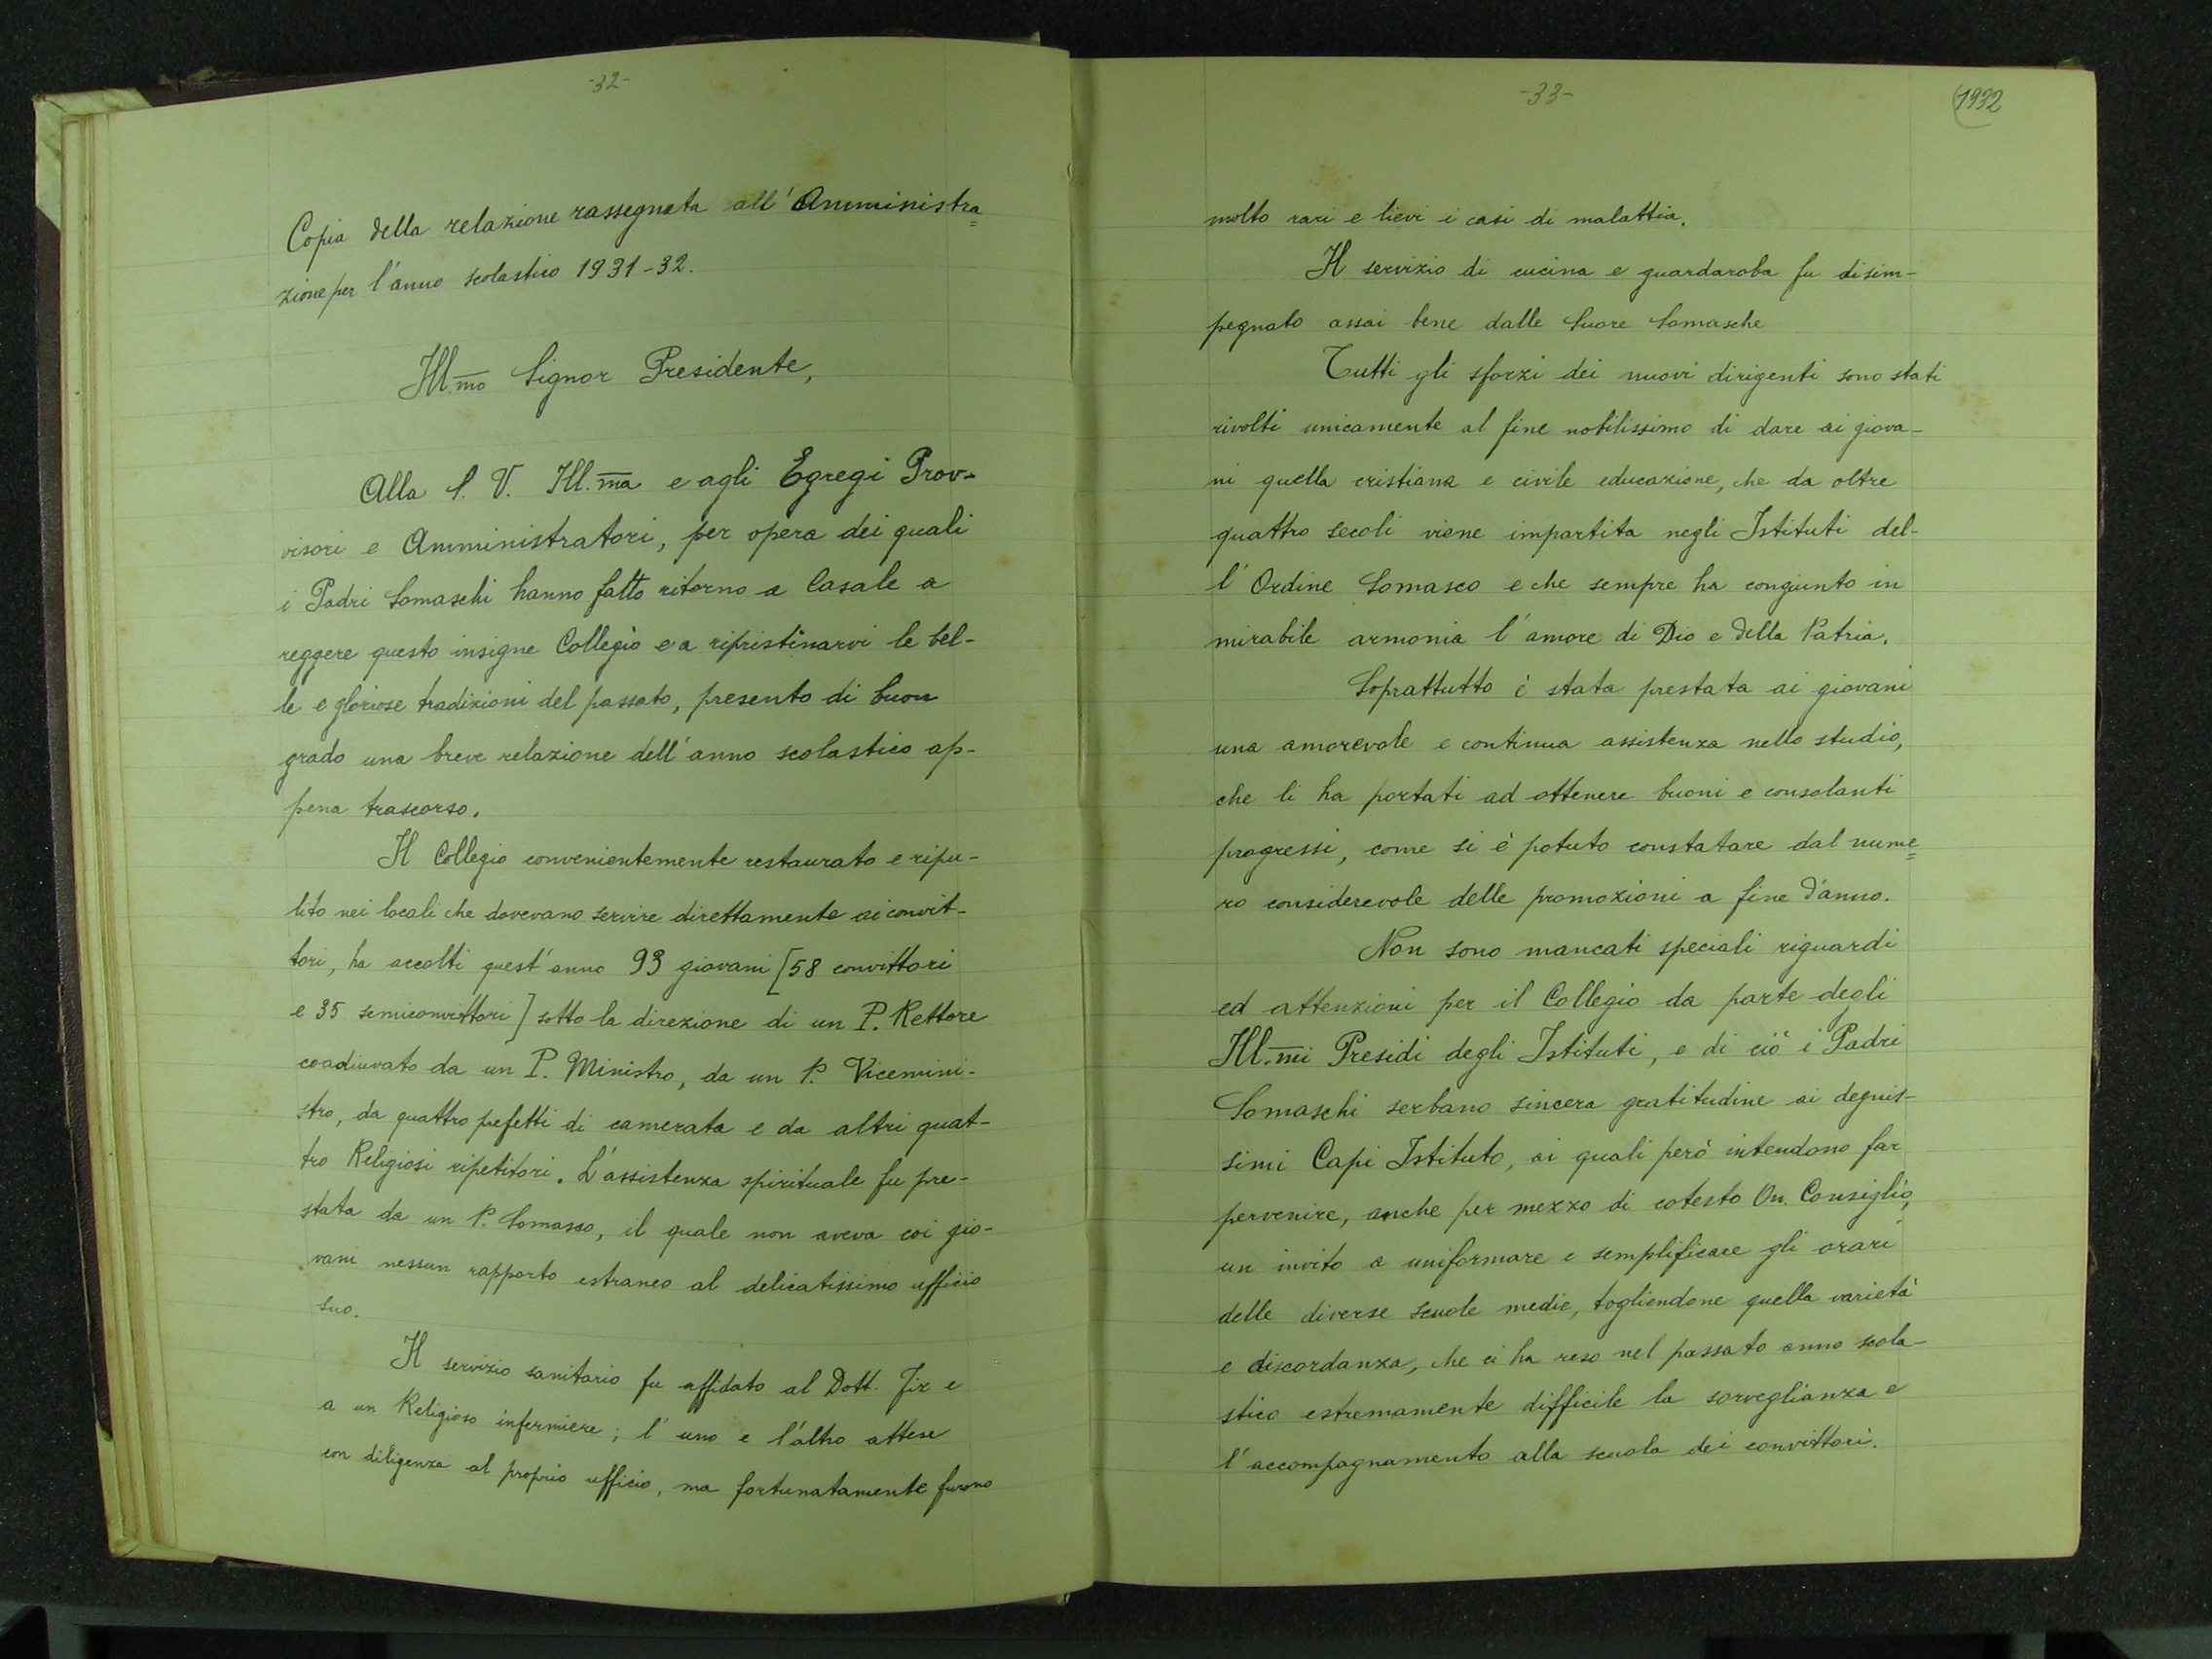 -32-
Copia della relazione rassegnata all'Amministra=
zione per l'anno scolastico 1931-32.
Ill.mo Signor Presidente,
Alla S. V. Ill.ma e agli Egregi Prov-
visori e Amministratori, per opera dei quali
i Padri Somaschi hanno fatto ritorno a Casale a
reggere questo insigne Collegio e a ripristinarvi le bel-
le e gloriose tradizioni del passato, presento di buon
grado una breve relazione dell'anno scolastico ap-
pena trascorso.
Il Collegio convenientemente restaurato e ripu-
lito nei locali che dovevano servire direttamente ai convit-
tori, ha accolti quest'anno 93 giovani [58 convittori
e 35 semiconvittori] sotto la direzione di un P. Rettore
coadiuvato da un P. Ministro, da un P. Vicemini-
stro, da quattro prefetti di camerata e da altri quat-
tro Religiosi ripetitori. L'assistenza spirituale fu pre-
stata da un P. Somasco, il quale non aveva coi gio-
vani nessun rapporto estraneo al delicatissimo ufficio
suo.
Il servizio sanitario fu affidato al Dott. e
a un Religioso infermiere; l'uno e l'altro attese
con diligenza al proprio ufficio, ma fortunatamente furono
-33-
(1932
molto rari e lievi i casi di malattia.
Il servizio di cucina e guardaroba fu disim-
pegnato assai bene dalle Suore Somasche
Tutti gli sforzi dei nuovi dirigenti sono stati
rivolti unicamente al fine nobilissimo di dare ai giova-
ni quella cristiana e civile educazione, che da oltre
quattro secoli viene impartita negli Istituti del-
l'Ordine Somasco e che sempre ha congiunto in
mirabile armonia l'amore di Dio e della Patria.
Soprattutto è stata prestata ai giovani
una amorevole e continua assistenza nello studio,
che li ha portati ad ottenere buoni e consolanti
progressi, come si è potuto constatare dal nume=
ro considerevole delle promozioni a fine d'anno.
Non sono mancati speciali riguardi
ed attenzioni per il Collegio da parte degli
Ill.mi Presidi degli Istituti, e di ciò i Padri
Somaschi serbano sincera gratitudine ai degnis-
simi Capi Istituto, ai quali però intendono far
pervenire, anche per mezzo di cotesto On. Consiglio,
un invito a uniformare e semplificare gli orari
delle diverse scuole medie, togliendone quella varietà
e discordanza, che ci ha reso nel passato anno scola-
stico estremamente difficile la sorveglianza e
l'accompagnamento alla scuola dei convittori.